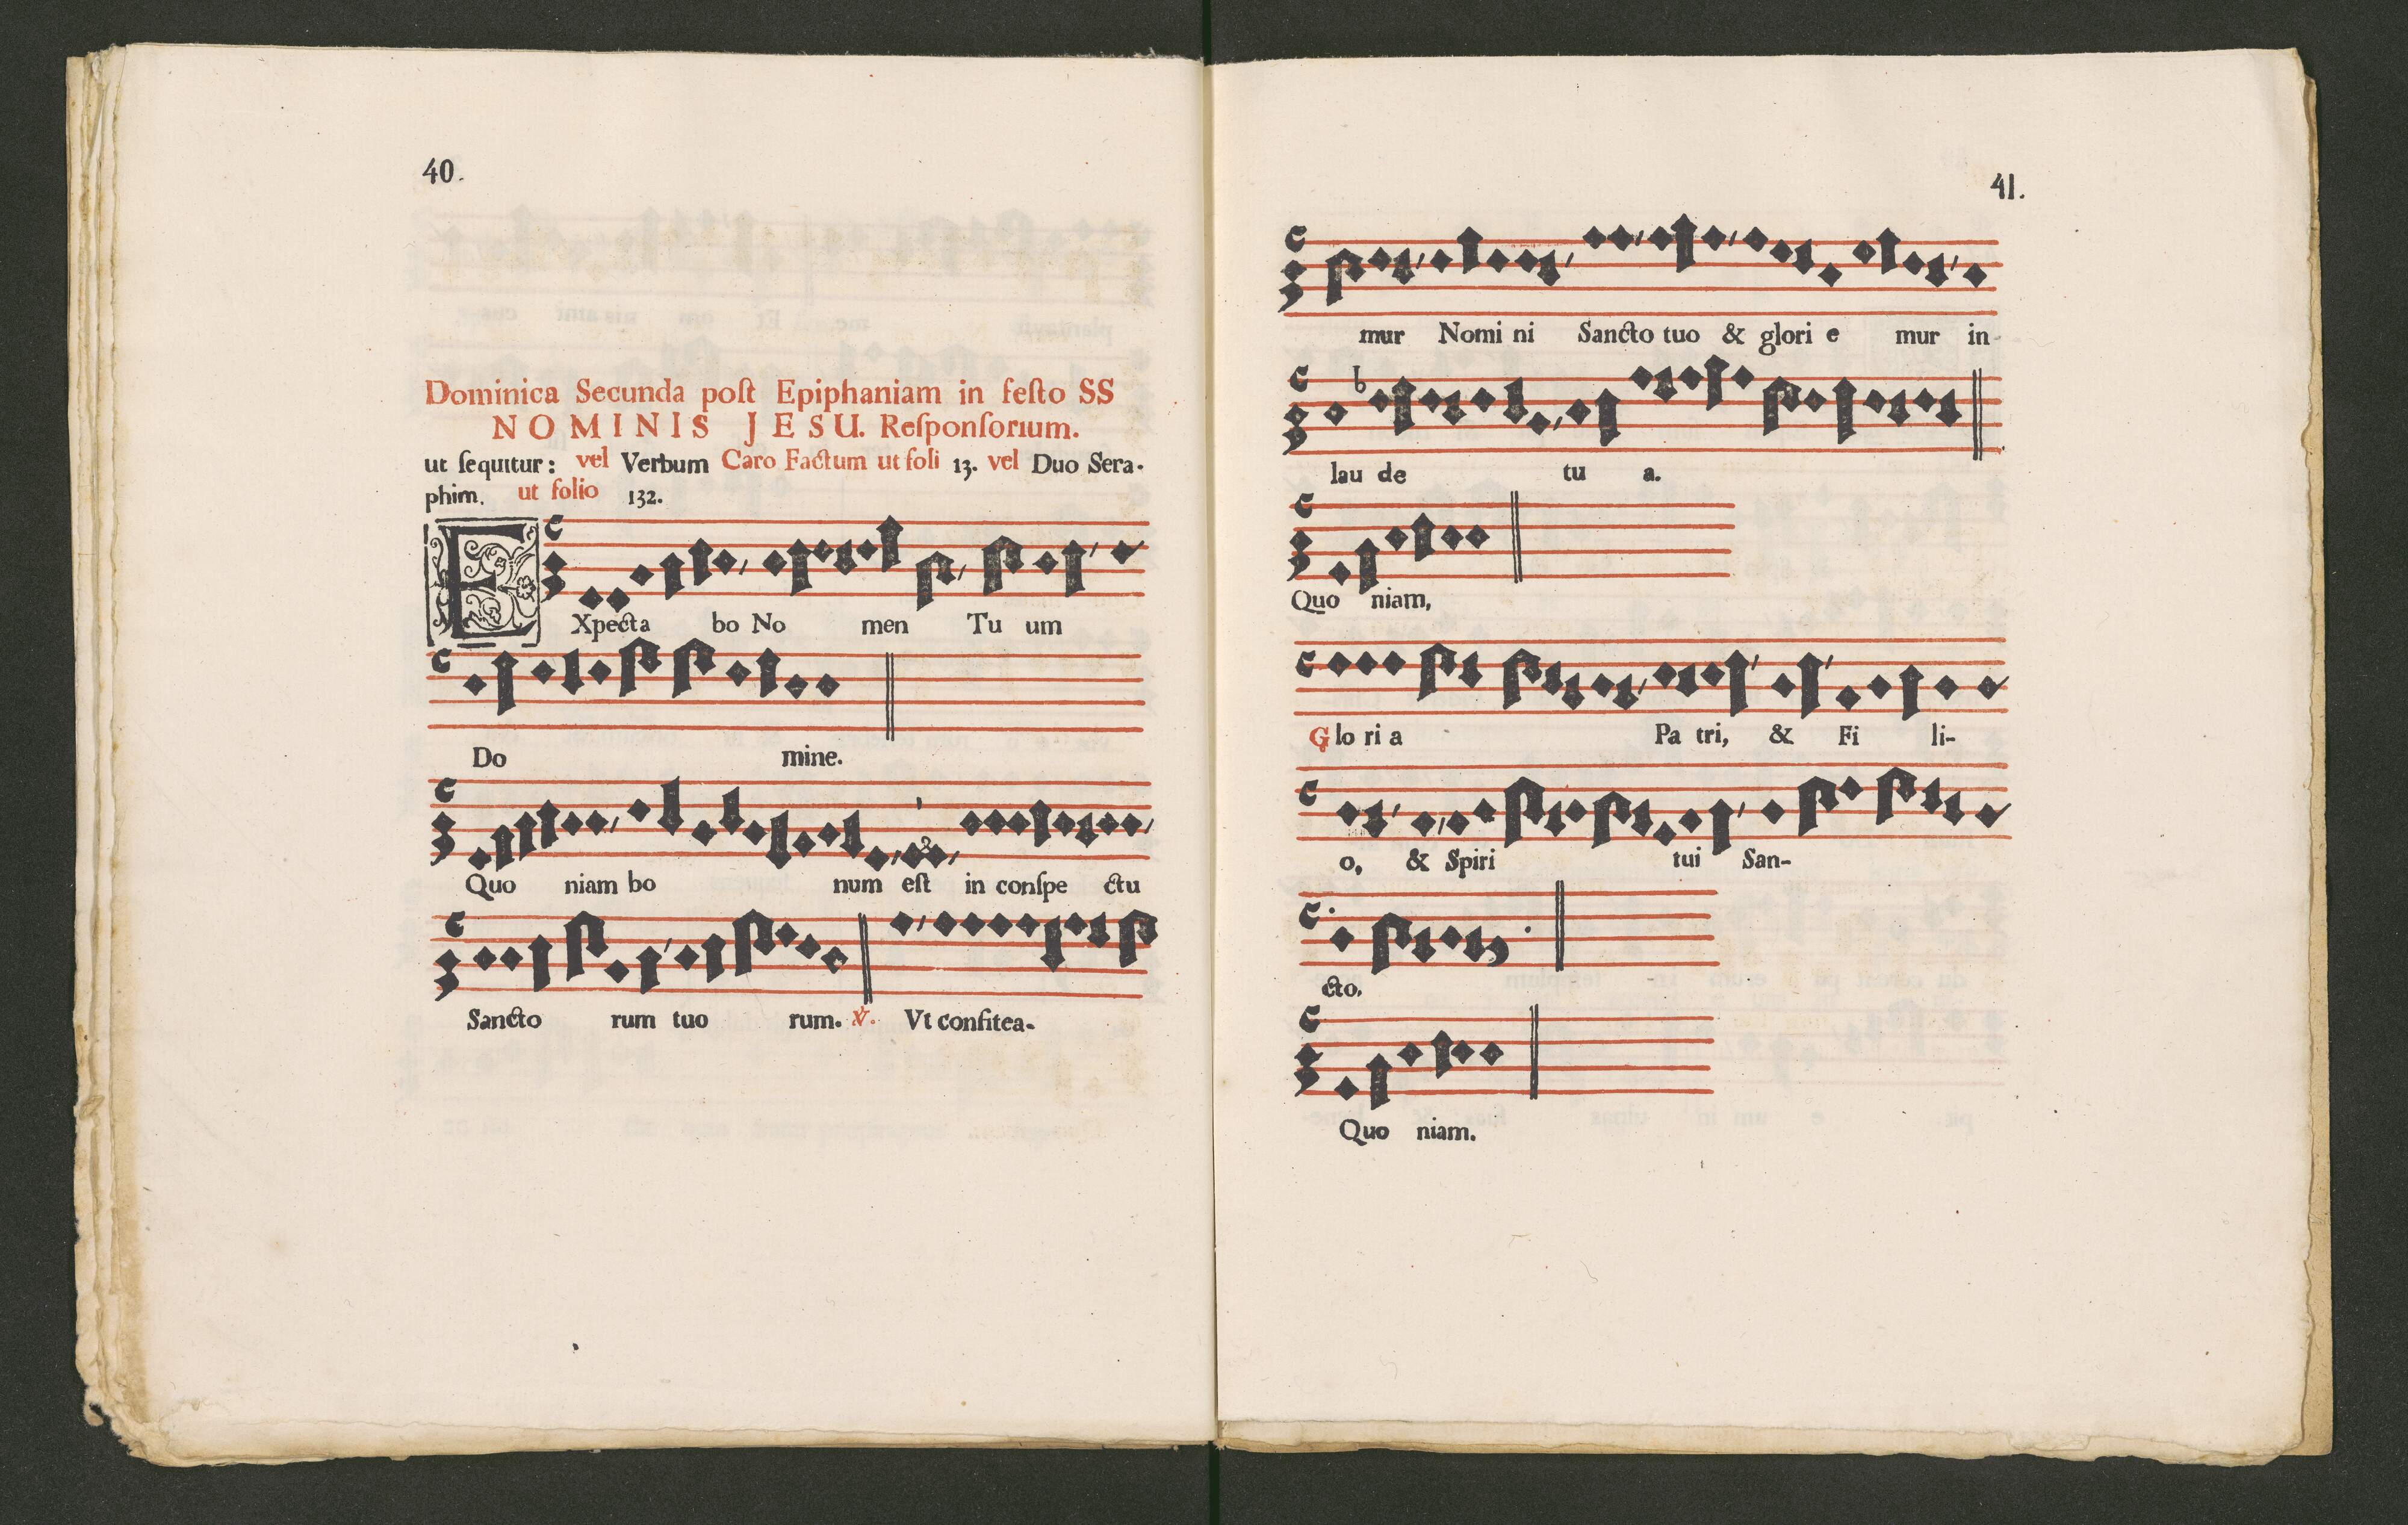 40.
Dominica Secunda poſt Epiphaniam in feſto SS
NOMINIS JESU. Reſponſorium.
ut ſequitur: vel Verbum Caro Factum ut foli 13. vel Duo Sera-
phim. ut folio 132.
EXpecta bo No men Tu um
Do mine.
Quo niam bo num eſt in conſpe ctu
Sancto rum tuo rum. ℣. Vt confitea-
41.
mur Nomi ni Sancto tuo & glori e mur in
lau de tu a.
Quo niam,
Glo ri a Pa tri, & Fi li-
o, & Spiri tui San-
cto.
Quo niam.